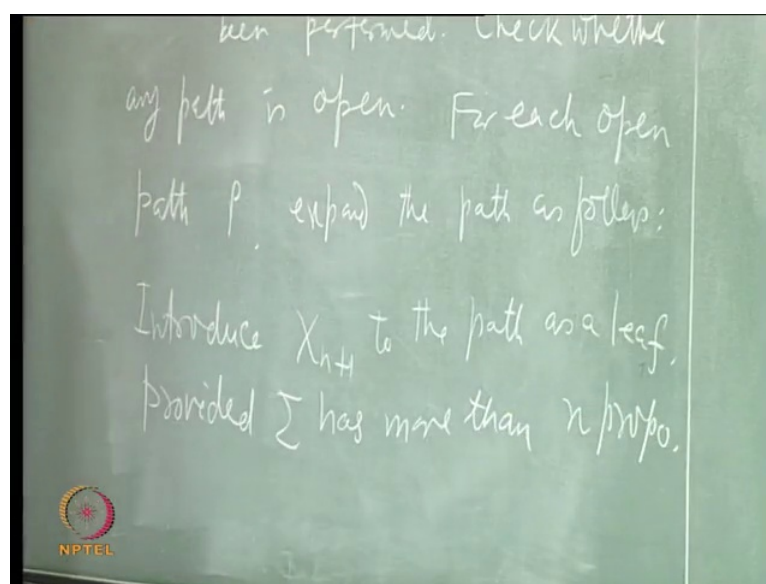 been performed. Check whether
any path is open. For each open
path ρ, expand the path as follows:
Introduce X_{n+1} to the path as a leaf,
provided Σ has more than n propo.
NPTEL